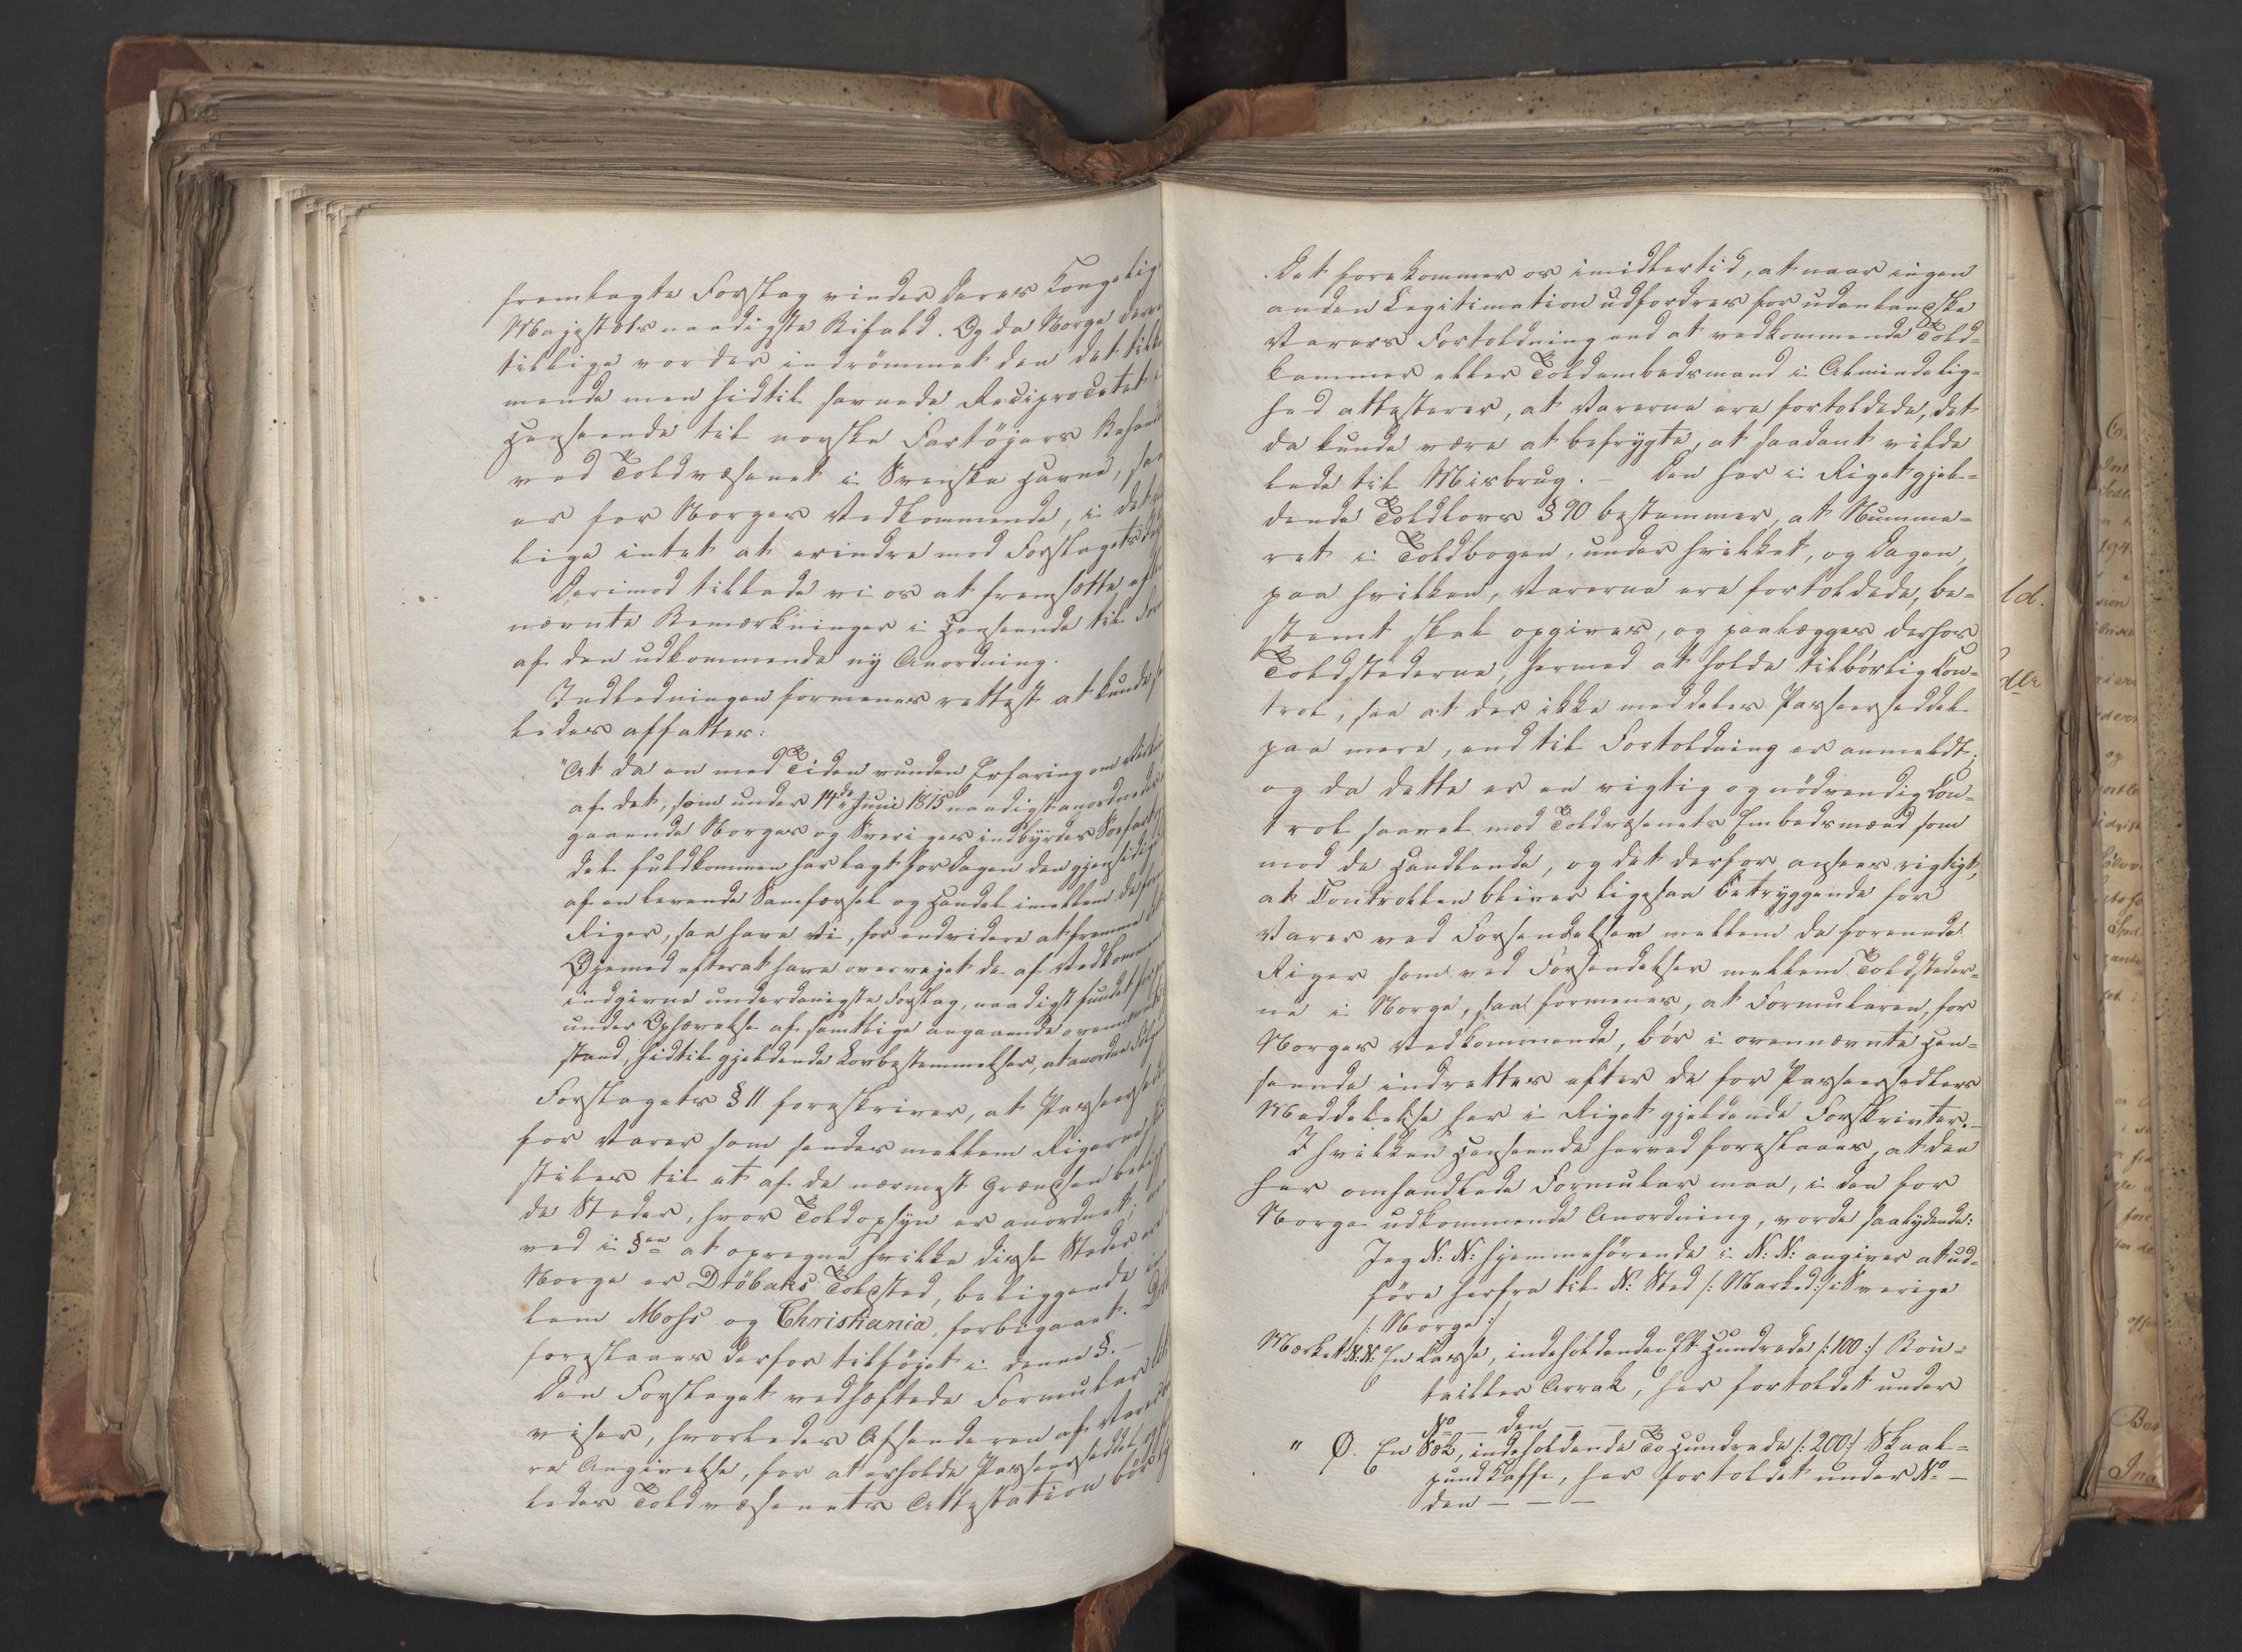 fremlagte Forslag vinder Deres Kongelig
Majestæts naadigste Bifald. Og da Norge
tillige vorder indrömmet den det
mende men hidtil savnede Reciprocitet i
Henseende til norske Fartöjers
ved Toldvæsenet i Svenske Havne,
er for Norges Vedkommende, i
lige intet at erindre mod Forslagets
Derimod tillade vi os at fremsætte
nævnte Bemærkninger i Henseende til
af den udkommende ny Anordning.
Indledningen formenes rettest at kunde
ledes affattes:
"At da en med Tiden vunden Erfaring om
af det, som under 14de Junii 1815 naadigst anordnedes
gaaende Norges og Sveriges indbyrdes Söefart
det fuldkommen har lagt for Dagen den gjensidige
af en levende Samfærsel og Handel imellem de
Riger, saa have Vi, for endvidere at fremme
Öjemed efterat have overvejet de af Vedkommende
indgivne underdanigste Forslag, naadigst fundet for
under Ophævelse af samtlige angaaende
stand, hidtil gjeldende Lovbestemmelser, at anordne
Forslagets § 11 foreskriver, at
for Varer som sendes mellem Rigerne
stiles til et af de nærmest Grændsen
de Steder, hvor Toldopsyn er anordnet;
ved i §en at opregne hvilke disse Steder
Norge er Dröbaks Toldsted, beliggende
lem Moss og Christiania, forbigaaet.
foreslaaes derfor tilföjet i denne §. –
Den Forslaget vedhæftede Formular
viser, hvorledes Afsenderen af
re Angivelse, for at erholde Passeerseddel,
ledes Toldvæsenets Attestation bör
Det forekommer os imidlertid, at naar ingen
anden Legitimation udfordres for udenlandske
Varers Fortoldning end at vedkommende Told=
kammer eller Toldembedsmand i Almindelig=
hed attesterer, at Varerne ere fortoldede, det
da kunde være at befrygte, at saadant vilde
lede til Misbrug. – Den her i Riget gjel=
dende Toldlovs § 90 bestemmer, at Numme=
ret i Toldbogen, under hvilket, og Dagen,
paa hvilken, Varerne ere fortoldede, be=
stemt skal opgives, og paalægges derhos
Toldstederne, hermed at holde tilbörlig Con=
trol, saa at der ikke meddeles Passeerseddel
paa mere, end til Fortoldning er anmeldt;
og da dette er en vigtig og nödvendig Con=
trol saavel mod Toldvæsenets Embedsmænd som
mod de Handlende, og det derfor ansees vigtigt,
at Controllen bliver ligesaa betryggende for
Varer ved Forsendelser mellem de forenede
Riger som ved Forsendelser mellem Toldsteder=
ne i Norge, saa formenes, at Formularen, for
Norges Vedkommende, bör i ovennævnte Hen=
seende indrettes efter de for Passeersedlers
Meddelelse her i Riget gjeldende Forskrivter. –
I hvilken Henseende herved foreslaaes, at den
her omhandlede Formular maa, i den for
Norge udkommende Anordning, vorde saalydende:
Jeg N: N: hjemmehörende i N: N: angiver at ud=
före herfra til N: Sted /: Marked :/ i Sverige
/: Norge :/
Mærket N: N: En Casse, indeholdende Et Hundrede /: 100 :/ Bou=
teiller Arrak, her fortoldet under
No – den – – –
" Ø. En Sæk, indeholdende To Hundrede /: 200 :/ Skaal=
pund Kaffe, her fortoldet under No –
den – – –